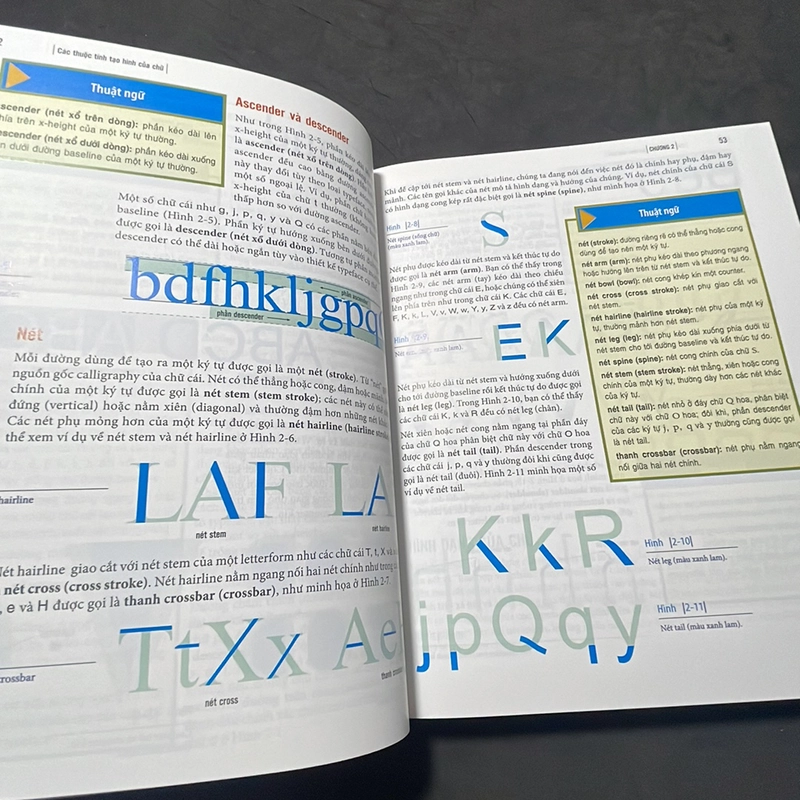 2
Các thuộc tính tạo hình của chữ
Thuật ngữ
ascender (nét xổ trên dòng): phần kéo dài lên
phía trên x-height của một ký tự thường.
descender (nét xổ dưới dòng): phần kéo dài xuống
bên dưới đường baseline của một ký tự thường.
Ascender và descender
Như trong Hình 2-5, phần kéo dài
x-height của một ký tự thường
là ascender (nét xổ trên dòng).
ascender đều cao bằng đường
này thay đổi tùy theo loại typeface
một số ngoại lệ. Ví dụ, phần
x-height của chữ t thường
thấp hơn so với đường ascender.
Một số chữ cái như g, j, p, q, y và Q có các phần nằm
baseline (Hình 2-5). Phần ký tự hướng xuống bên dưới
được gọi là descender (nét xổ dưới dòng). Tương tự phần
descender có thể dài hoặc ngắn tùy vào thiết kế typeface
phần ascender
bdfhkljgpqç
phần descender
Nét
Mỗi đường dùng để tạo ra một ký tự được gọi là một nét (stroke). Từ
nguồn gốc calligraphy của chữ cái. Nét có thể thẳng hoặc cong, đậm hoặc
chính của một ký tự được gọi là nét stem (stem stroke); các nét này có thể
đứng (vertical) hoặc nằm xiên (diagonal) và thường đậm hơn những nét
Các nét phụ mỏng hơn của một ký tự được gọi là nét hairline (hairline stroke)
thể xem ví dụ về nét stem và nét hairline ở Hình 2-6.
hairline
LAF LA
nét stem
nét hairline
Nét hairline giao cắt với nét stem của một letterform như các chữ cái T, t, X và
nét cross (cross stroke). Nét hairline nằm ngang nối hai nét chính như trong
e và H được gọi là thanh crossbar (crossbar), như minh họa ở Hình 2-7.
crossbar
TtXx Ae
nét cross
thanh crossbar
CHƯƠNG 2
53
Khi đề cập tới nét stem và nét hairline, chúng ta đang nói đến việc nét đó là chính hay phụ, đậm hay
mảnh. Các tên gọi khác của nét mô tả hình dạng và hướng của chúng. Ví dụ, nét chính của chữ cái S
có hình dạng cong kép rất đặc biệt gọi là nét spine (spine), như minh họa ở Hình 2-8.
Hình |2-8|
Nét spine (sống chữ)
(màu xanh lam).
S
Nét phụ được kéo dài từ nét stem và kết thúc tự do
được gọi là nét arm (arm). Bạn có thể thấy trong
Hình 2-9, các nét arm (tay) kéo dài theo chiều
ngang như trong chữ cái E, hoặc chúng có thể xiên
lên phía trên như trong chữ cái K. Các chữ cái E,
F, K, k, L, V, v, W, w, Y, y, Z và z đều có nét arm.
Hình |2-9|
EK
Nét phụ kéo dài từ nét stem và hướng xuống dưới
cho tới đường baseline rồi kết thúc tự do được gọi
là nét leg (leg). Trong Hình 2-10, bạn có thể thấy
các chữ cái K, k và R đều có nét leg (chân).
Nét xiên hoặc nét cong nằm ngang tại phần đáy
của chữ Q hoa phân biệt chữ này với chữ O hoa
được gọi là nét tail (tail). Phần descender trong
các chữ cái j, p, q và y thường đôi khi cũng được
gọi là nét tail (đuôi). Hình 2-11 minh họa một số
ví dụ về nét tail.
Thuật ngữ
nét (stroke): đường riêng rẽ có thể thẳng hoặc cong
dùng để tạo nên một ký tự.
nét arm (arm): nét phụ kéo dài theo phương ngang
hoặc hướng lên trên từ nét stem và kết thúc tự do.
nét bowl (bowl): nét cong khép kín một counter.
nét cross (cross stroke): nét phụ giao cắt với
nét stem.
nét hairline (hairline stroke): nét phụ của một ký
tự, thường mảnh hơn nét stem.
nét leg (leg): nét phụ kéo dài xuống phía dưới từ
nét stem cho tới đường baseline và kết thúc tự do.
nét spine (spine): nét cong chính của chữ S.
nét stem (stem stroke): nét thẳng, xiên hoặc cong
chính của một ký tự, thường dày hơn các nét khác
của ký tự.
nét tail (tail): nét nhỏ ở đáy chữ Q hoa, phân biệt
chữ này với chữ O hoa; đôi khi, phần descender
của các ký tự j, p, q và y thường cũng được gọi
là nét tail.
thanh crossbar (crossbar): nét phụ nằm ngang
nối giữa hai nét chính.
KkR
Hình |2-10|
Nét leg (màu xanh lam).
jpQqy
Hình |2-11|
Nét tail (màu xanh lam).